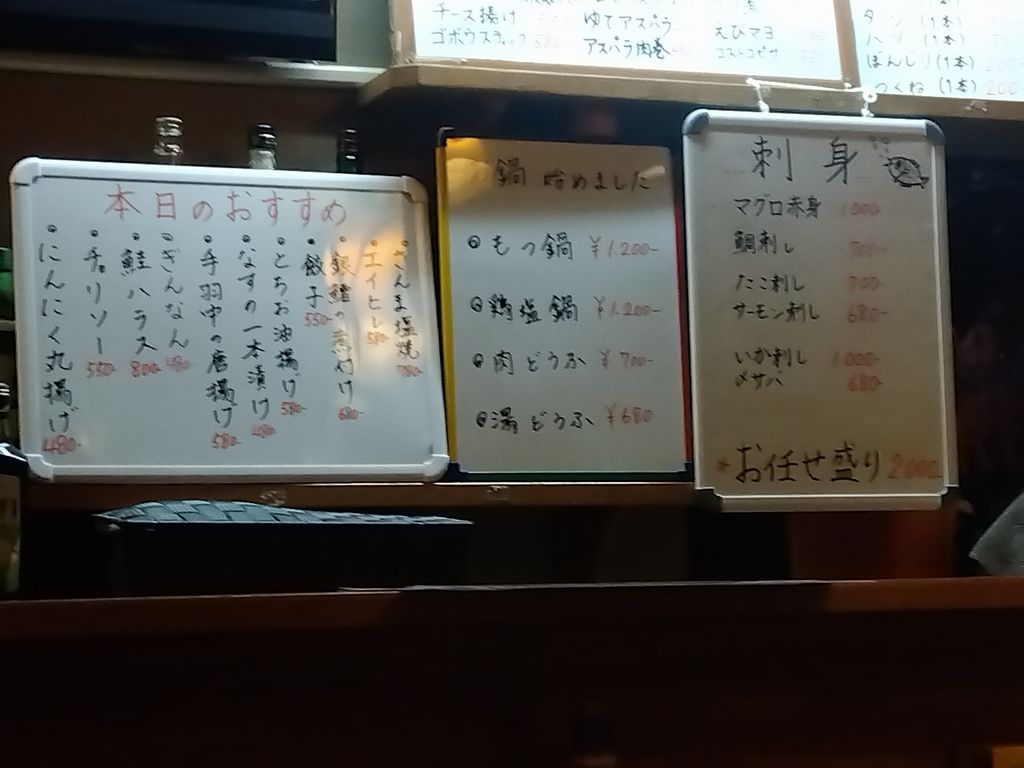 チーズ揚げ
ゴボウスティック 580
ゆでアスパラ
アスパラ肉巻
えびマヨ
タン (1本)
ハツ (1本)
ぼんじり(1本) 200
つくね (1本) 200
本日のおすすめ
・さんま塩焼 780
・エイヒレ 580-
・銀鱈の煮付け 680-
・餃子 550-
・とちお油揚げ 580-
・なすの一本漬け 480-
・手羽中の唐揚げ 580-
・ぎんなん 480-
・鮭ハラス 800-
・チョリソー 580-
・にんにく丸揚げ 480-
鍋 始めました
◎もつ鍋 ¥1.200-
◎鶏塩鍋 ¥1.200-
◎肉どうふ ¥700-
◎湯どうふ ¥680
刺身
マグロ赤身 1000-
鯛刺し 700-
たこ刺し 700-
サーモン刺し 680-
いか刺し 1000-
〆サバ 680-
*お任せ盛り 2000-